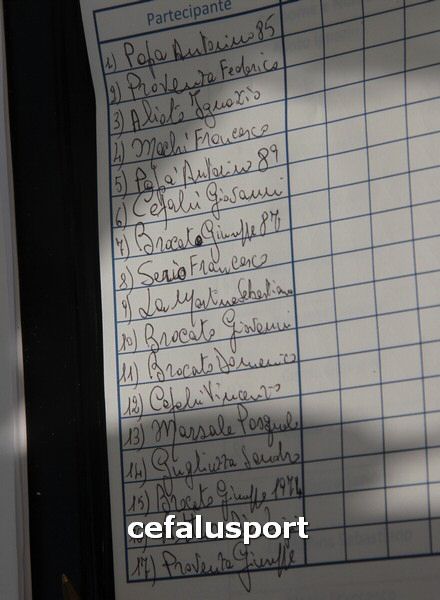 Partecipante
1) Papa Antonino 85
2) Proventa Federico
3) Aliato Ignazio
4) Machi Francesco
5) Papa Antonino 89
6) Cefalù Giovanni
7) Brocato Giuseppe 87
8) Serio Francesco
9) La Martina Sebastiano
10) Brocato Giovanni
11) Brocato Domenico
12) Cefalù Vincenzo
13) Marsala Pasquale
14) Gugliuzza Sandro
15) Brocato Giuseppe 1974
cefalusport
17) Proventa Giuseppe